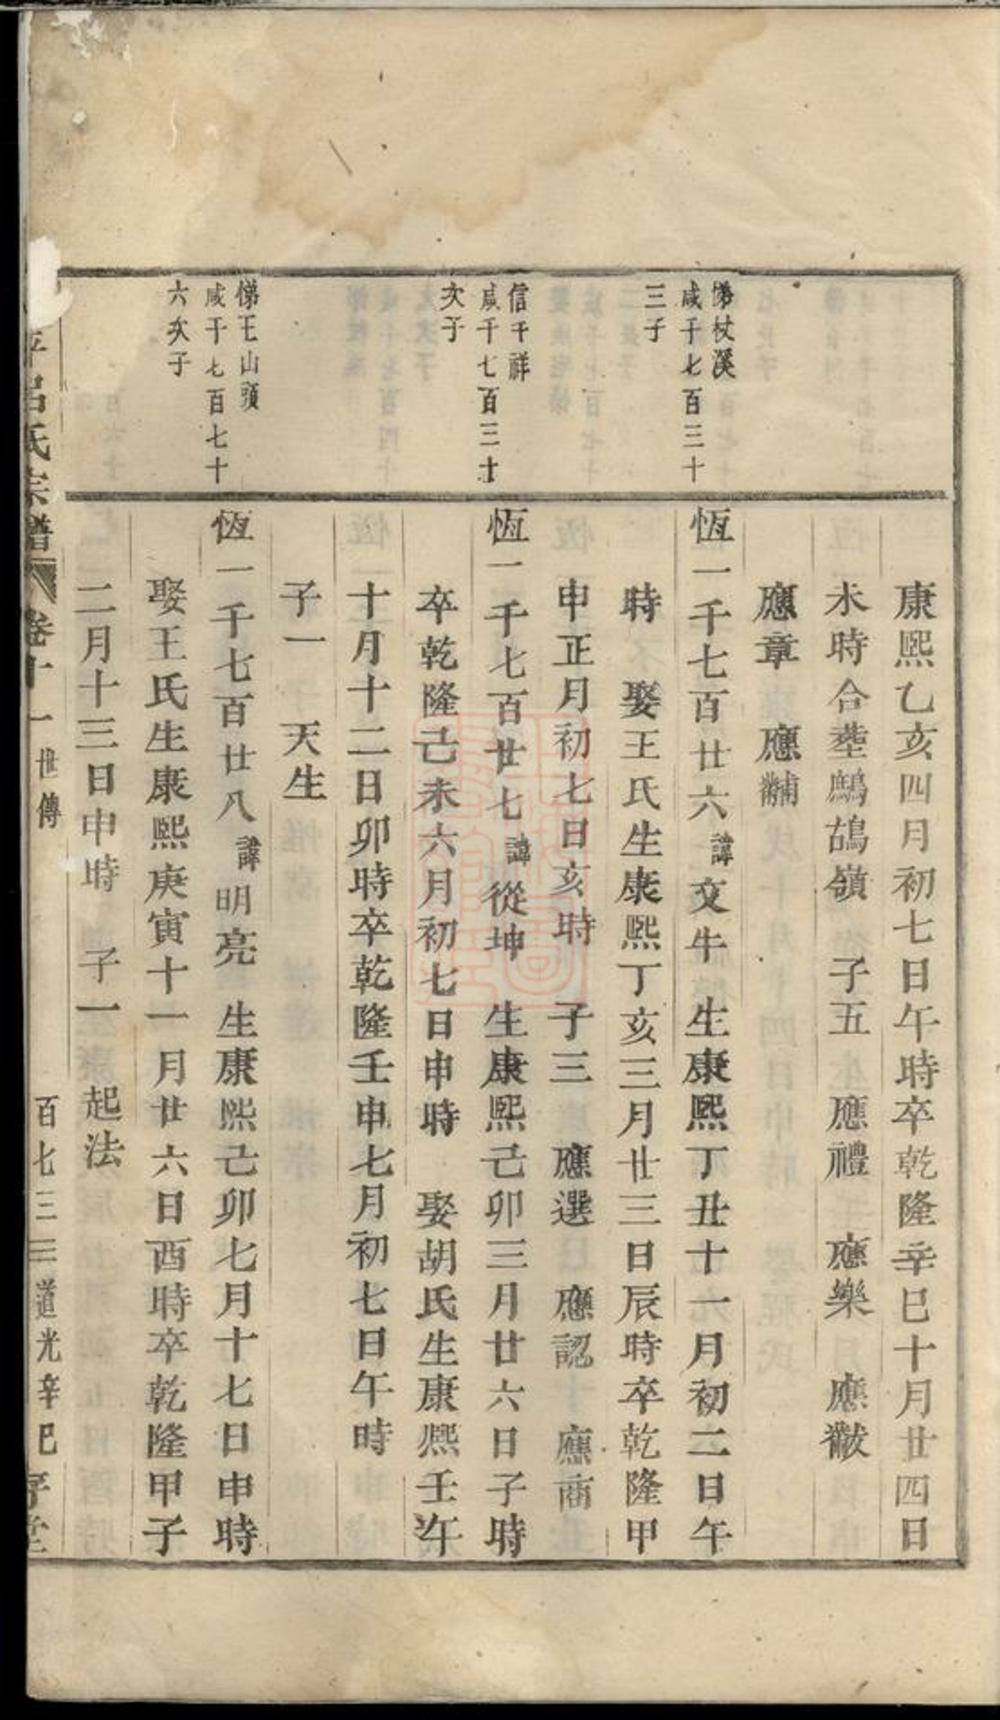 康熙乙亥四月初七日午時卒乾隆辛巳十月廿四日
未時合塟鷓鴣嶺 子五 應禮 應樂 應黻
應章 應黼
悌杖溪
咸千七百三十
三子
恆一千七百廿六諱文牛 生康熙丁丑十一月初二日午
時 娶王氏生康熙丁亥三月廿三日辰時卒乾隆甲
申正月初七日亥時 子三 應選 應認 應商
信千祥
咸千七百三十
次子
恆一千七百廿七諱從坤 生康熙己卯三月廿六日子時
卒乾隆己未六月初七日申時 娶胡氏生康熙壬午
十月十二日卯時卒乾隆壬申七月初七日午時
子一 天生
悌王山頭
咸千七百七十
六次子
恆一千七百廿八諱明亮 生康熙己卯七月十七日申時
娶王氏生康熙庚寅十一月廿六日酉時卒乾隆甲子
二月十三日申時 子一 起法
呂氏宗譜 卷十一 世傳 百七三三 道光辛巳